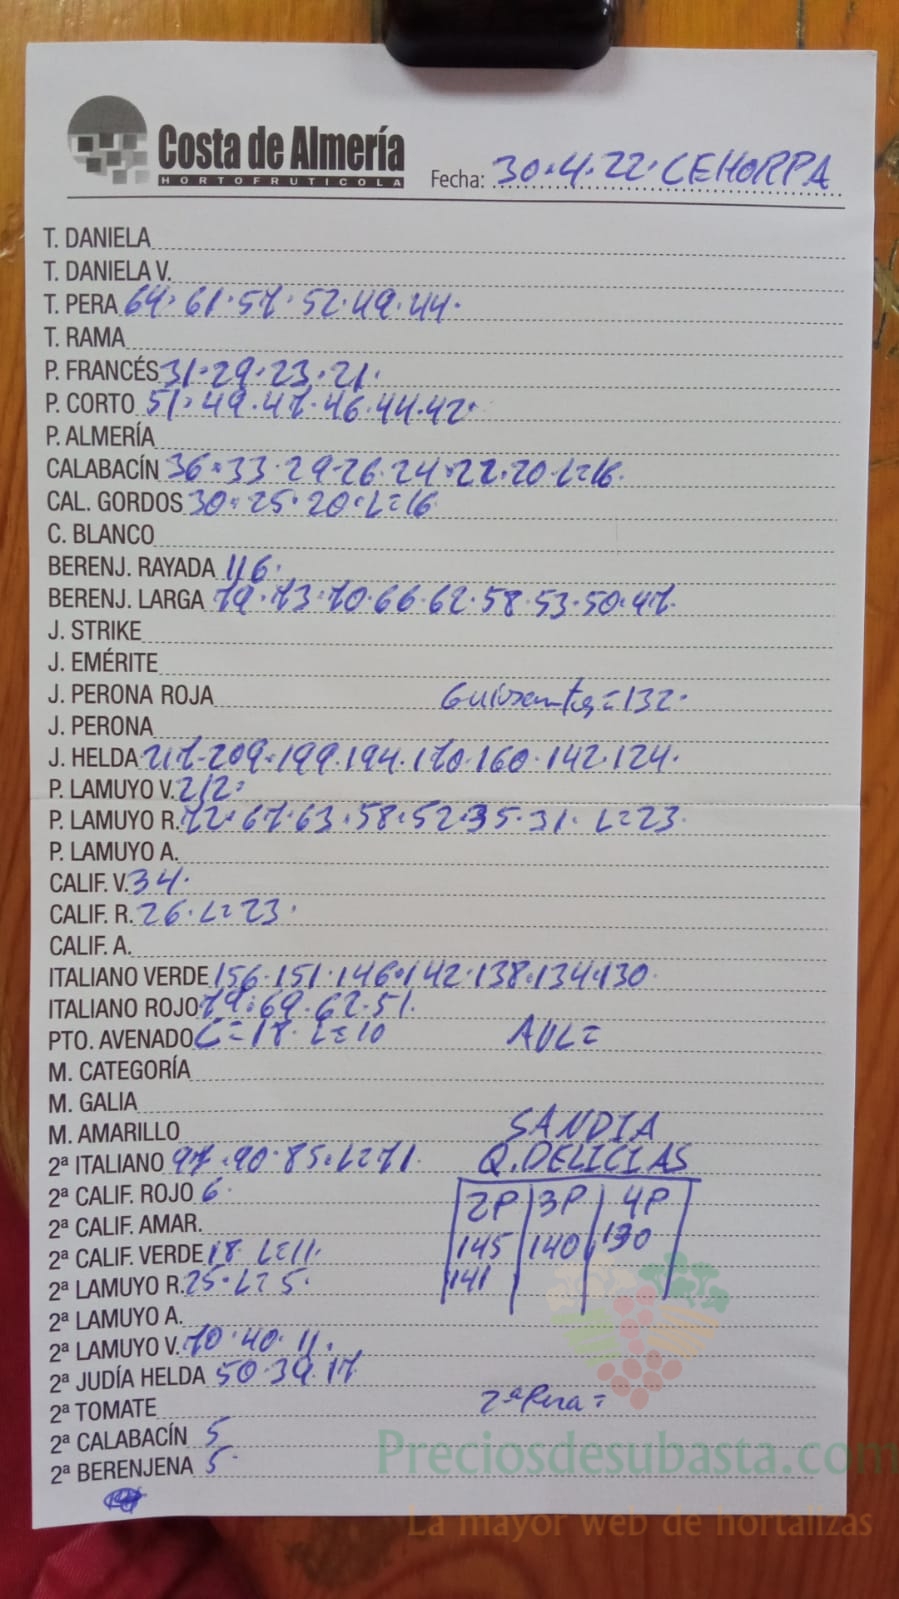 Costa de Almería
HORTOFRUTICOLA
Fecha: 30.4.22. CEHORPA
T. DANIELA
T. DANIELA V.
T. PERA 64. 61. 57. 52. 49. 44.
T. RAMA
P. FRANCÉS 31. 29. 23. 21.
P. CORTO 51. 49. 47. 46. 44. 42.
P. ALMERÍA
CALABACÍN 36. 33. 29. 26. 24. 22. 20. L=16.
CAL. GORDOS 30. 25. 20. L=16
C. BLANCO
BERENJ. RAYADA 116.
BERENJ. LARGA 79. 73. 70. 66. 62. 58. 53. 50. 47.
J. STRIKE
J. EMÉRITE
J. PERONA ROJA Guisantes=132.
J. PERONA
J. HELDA 217. 209. 199. 194. 170. 160. 142. 124.
P. LAMUYO V. 212.
P. LAMUYO R. 72. 67. 63. 58. 52. 35. 31. L=23.
P. LAMUYO A.
CALIF. V. 34.
CALIF. R. 26. L=23.
CALIF. A.
ITALIANO VERDE 156. 151. 146. 142. 138. 134. 130.
ITALIANO ROJO 79. 69. 62. 51.
PTO. AVENADO C=17. L=10 AVL=
M. CATEGORÍA
M. GALIA
M. AMARILLO SANDIA
2ª ITALIANO 97. 90. 85. L=71. Q. DELICIAS
2ª CALIF. ROJO 6. 2P 3P 4P
2ª CALIF. AMAR. 145 140 130
2ª CALIF. VERDE 18. L=11.
2ª LAMUYO R. 25. L=5. 141
2ª LAMUYO A.
2ª LAMUYO V. 70. 40. 11.
2ª JUDÍA HELDA 50. 39. 17
2ª TOMATE 2ª Pera=
2ª CALABACÍN 5
2ª BERENJENA 5.
Preciosdesubasta.com
La mayor web de hortalizas